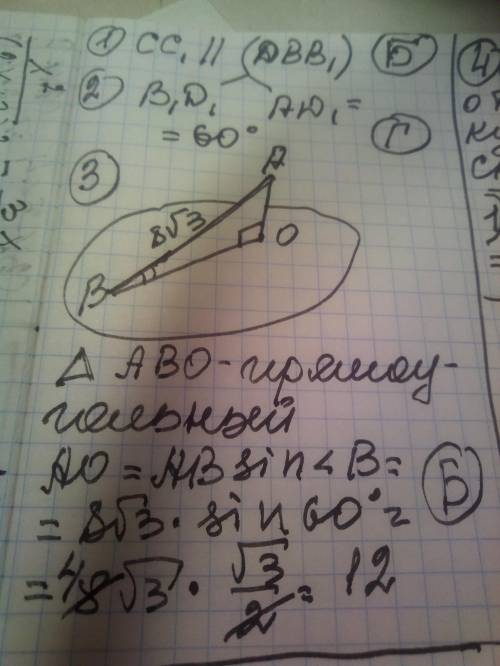 ① CC₁ || (DBB₁) Б
② B₁D₁ ^ AD₁ =
= 60° Г
③
A
8√3
O
B
△ ABO - прямоу-
гольный
AO = AB sin∠B = Б
= 8√3 · sin 60° =
= ⁴8√3 · √3/2 = 12
④